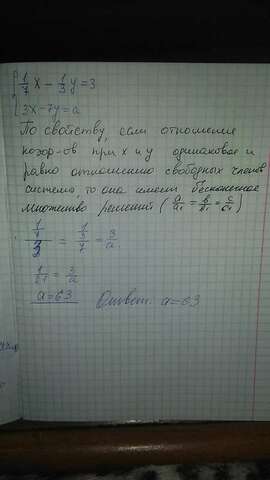 { 1/7 x - 1/3 y = 3
{ 3x - 7y = a
По свойству, если отношение
коэф-ов при x и y одинаковое и
равно отношению свободных членов
система, то она имеет бесконечное
множество решений ( a/a₁ = b/b₁ = c/c₁ )
1/7 / 3 = 1/3 / 7 = 3/a
1/21 = 3/a
a = 63 Ответ: a = 63